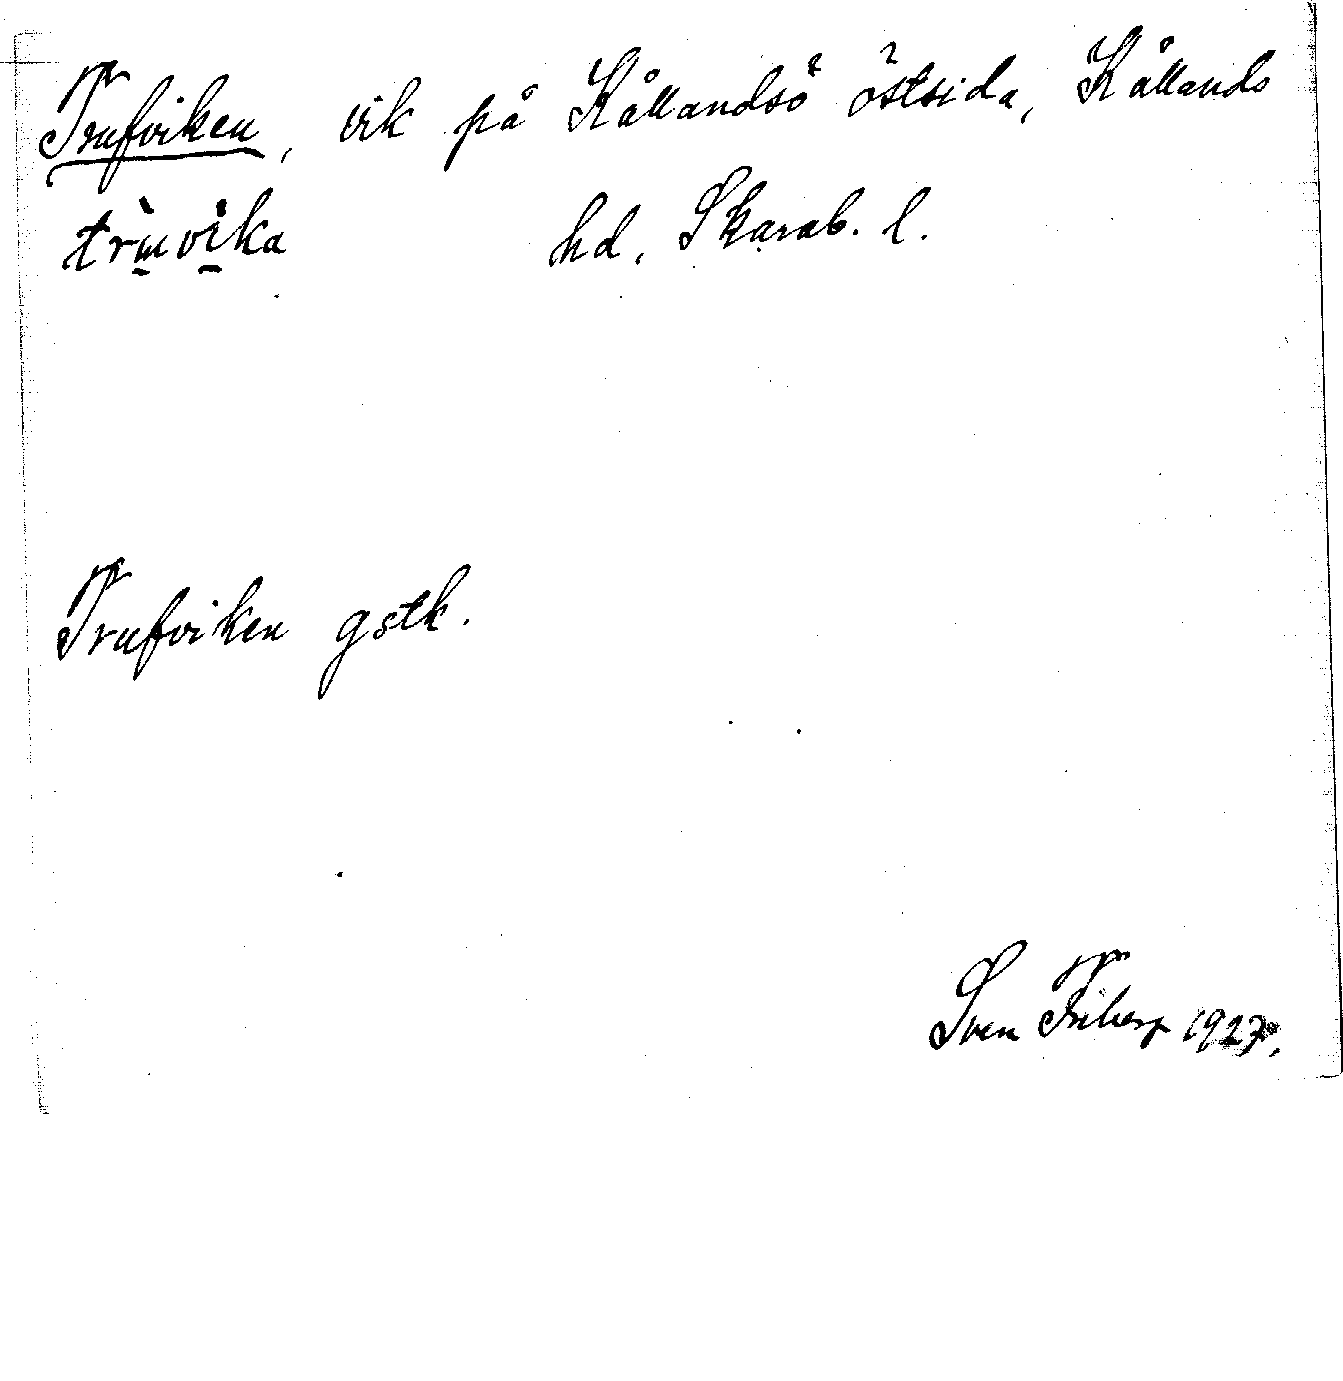 Trufviken, vik på Kållandsö östsida, Kållands
trùvìka hd, Skarab. l.
Trufviken gstk.
Sven Friberg 1927.